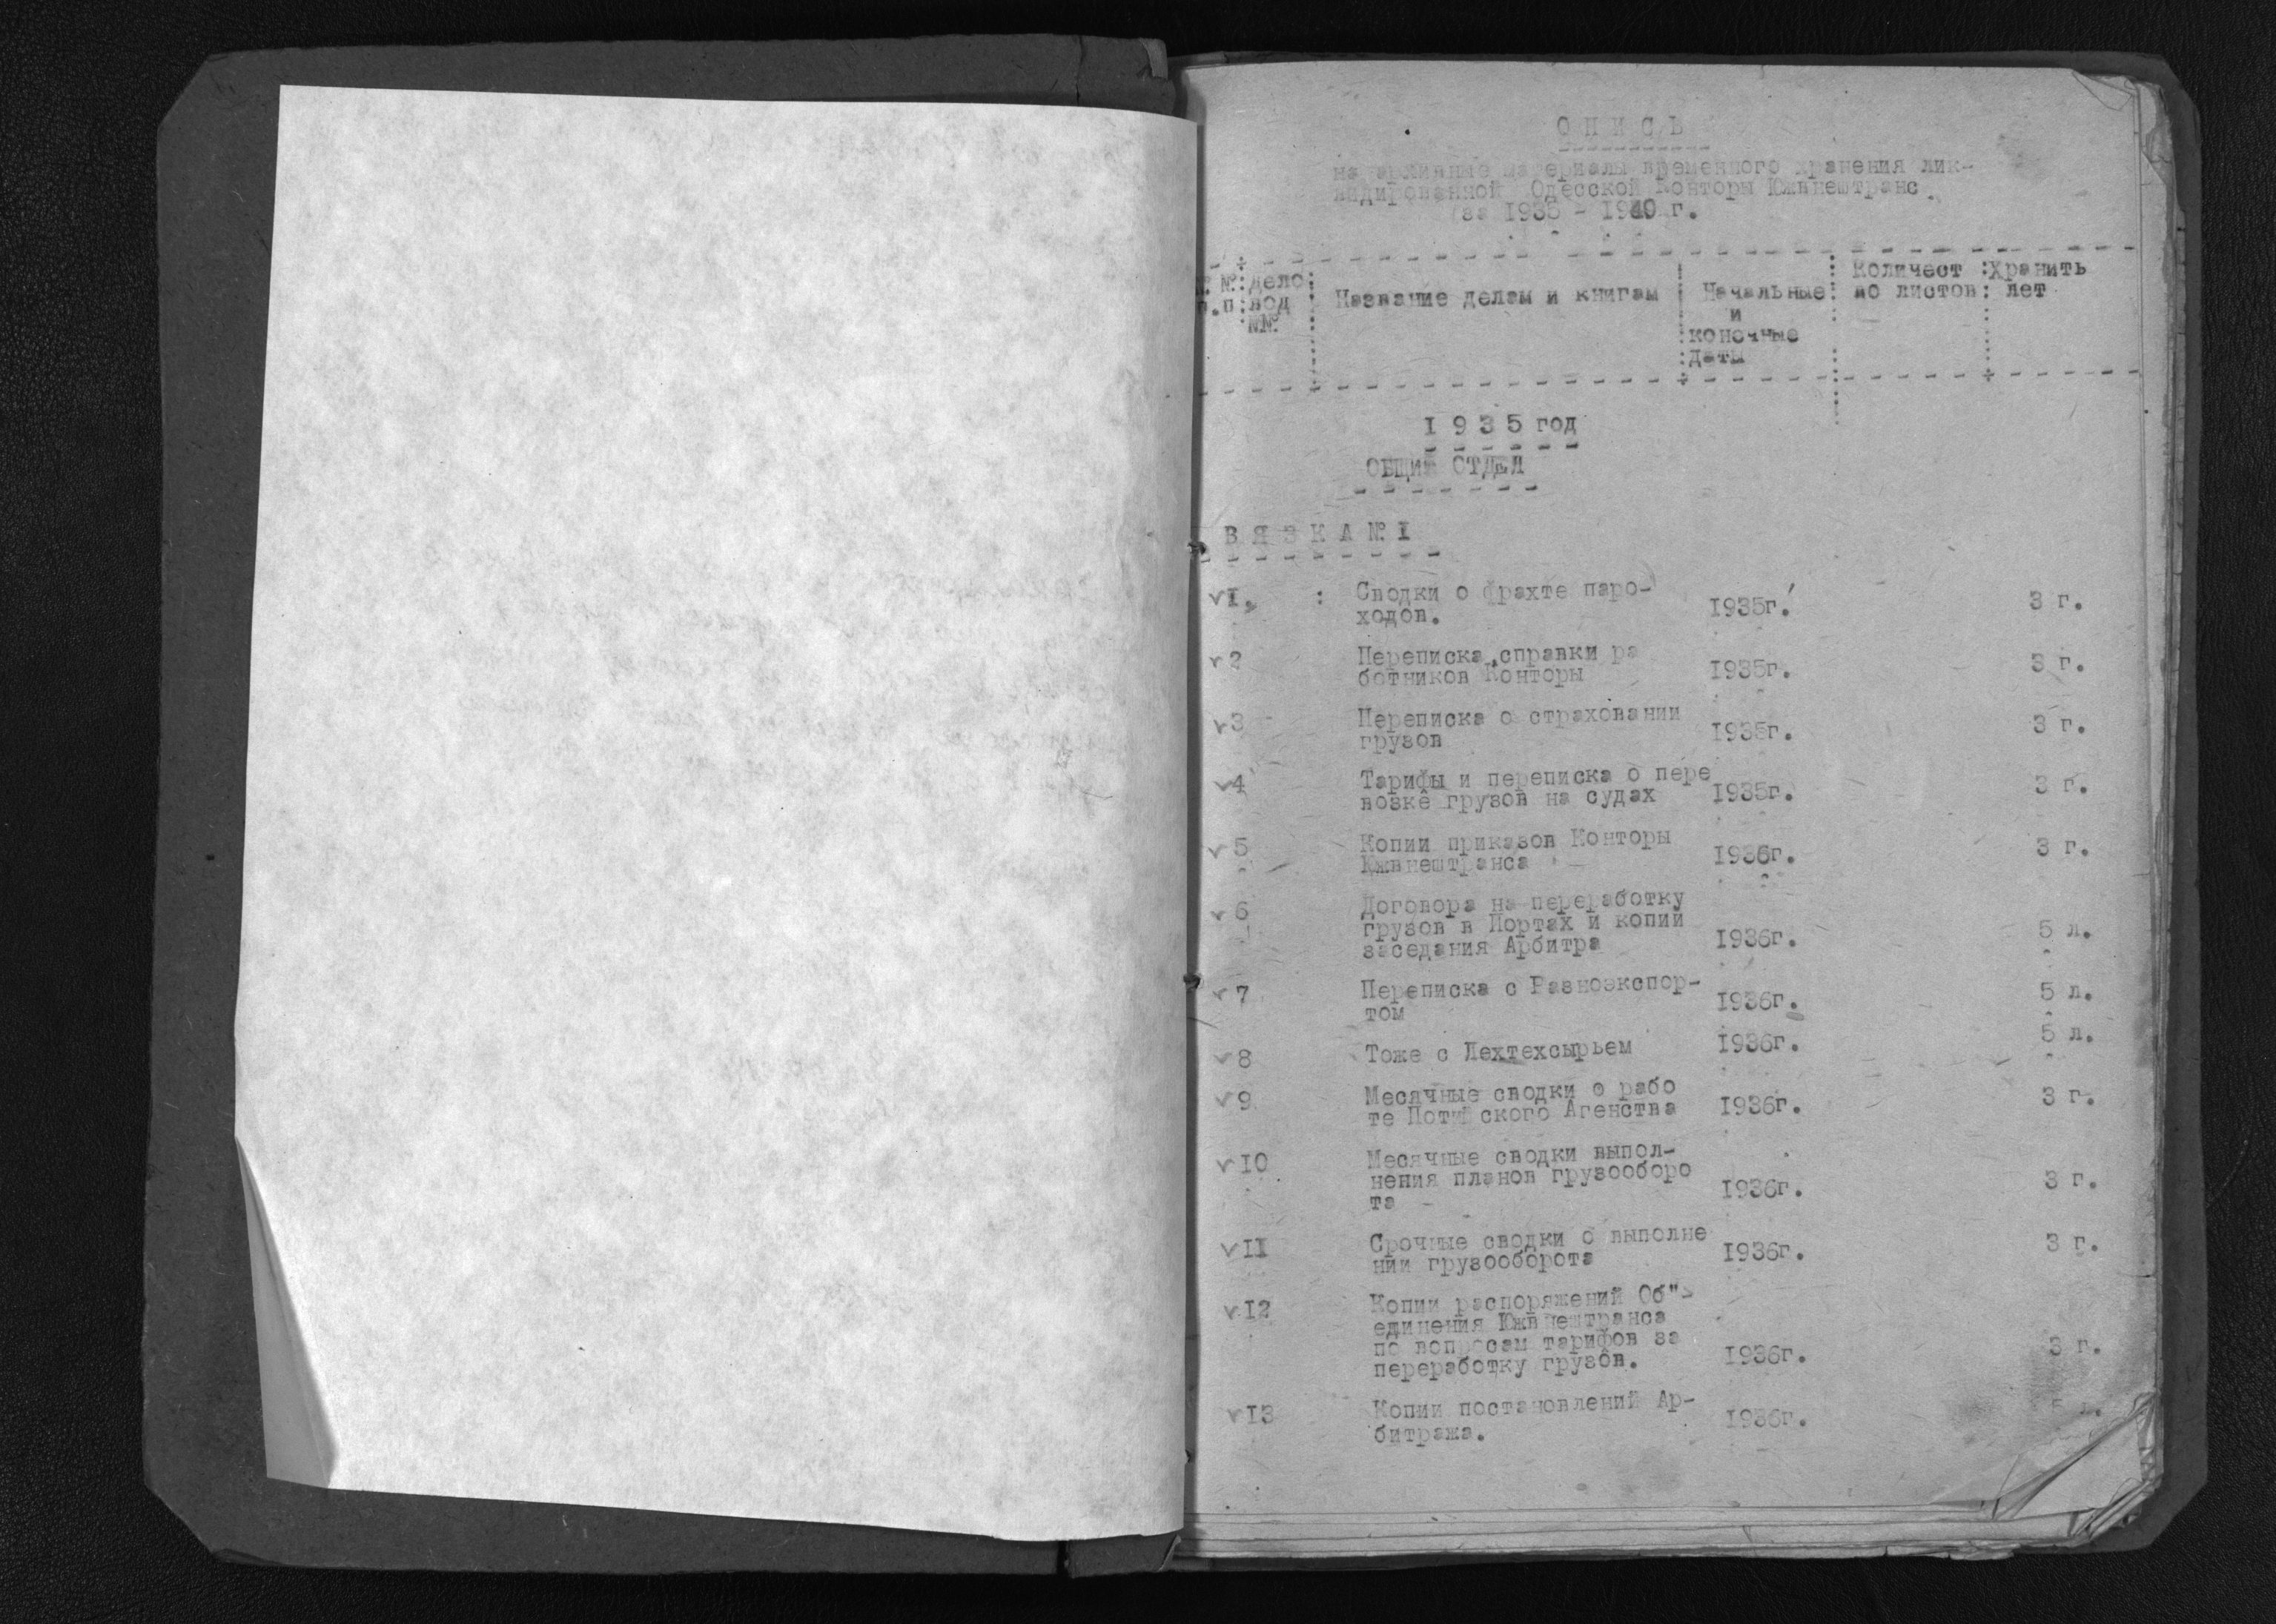 О П И С Ь
на архивные материалы временного хранения лик-
видированной Одесской Конторы Южвнештранс.
за 1935 - 1940 г.
№ №: дело: Название делам и книгам : Начальные и конечные даты : Количест во листов : Хранить лет
п.п: вод №№
I 9 3 5 год
ОБЩИЙ ОТДЕЛ
В Я З К А № I
I. : Сводки о фрахте паро-
ходов. 1935г. 3 г.
2 Переписка, справки ра
ботников Конторы 1935г. 3 г.
3 Переписка о страховании
грузов 1935г. 3 г.
4 Тарифы и переписка о пере
возке грузов на судах 1935г. 3 г.
5 Копии приказов Конторы
Южвнештранса 1936г. 3 г.
6 Договора на переработку
грузов в Портах и копии
заседания Арбитра 1936г. 5 л.
7 Переписка с Разноэкспор-
том 1936г. 5 л.
8 Тоже с Лехтехсырьем 1936г. 5 л.
9 Месячные сводки о рабо
те Потийского Агенства 1936г. 3 г.
10 Месячные сводки выпол-
нения планов грузооборо
та 1936г. 3 г.
II Срочные сводки о выполне
нии грузооборота 1936г. 3 г.
12 Копии распоряжений Об"-
единения Южвнештранса
по вопросам тарифов за
переработку грузов. 1936г. 3 г.
13 Копии постановлений Ар-
битража. 1936г. 5 л.